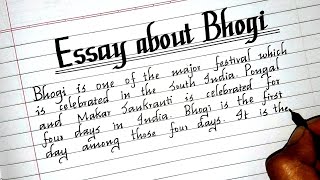 Essay about Bhogi
Bhogi is one of the major festival which
is celebrated in the South India. Pongal
and Makar Sankranti is celebrated for
four days in India. Bhogi is the first
day among those four days. It is the